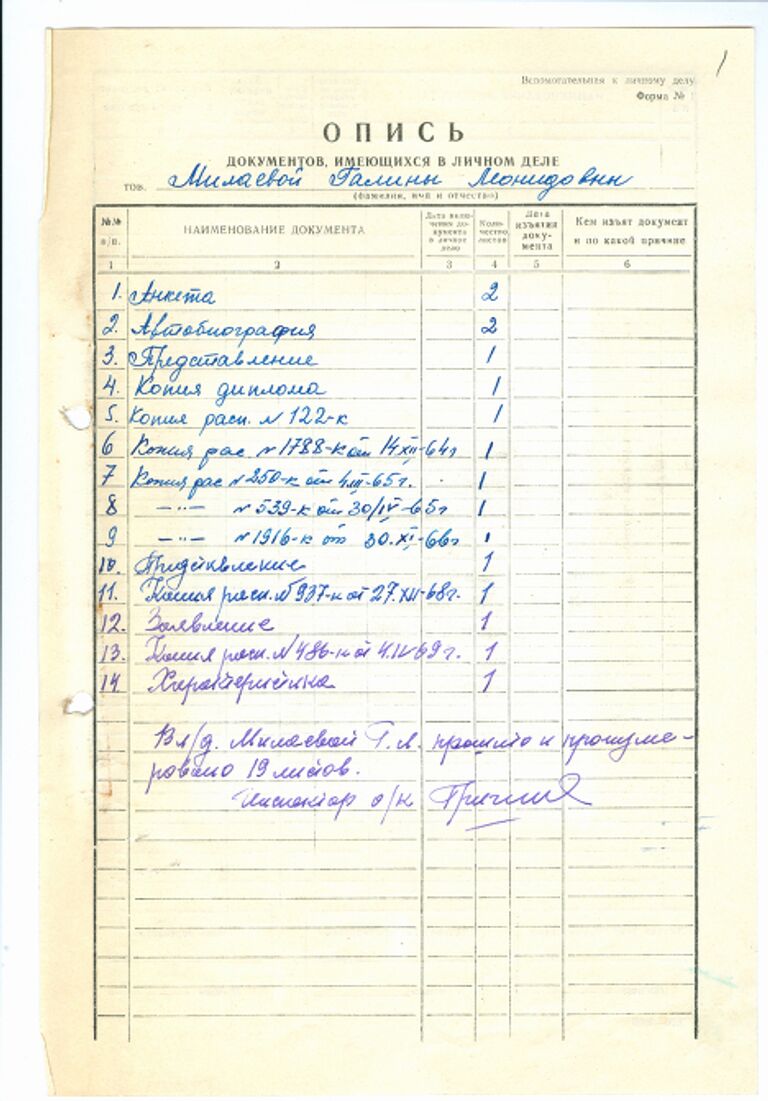 1
Вспомогательная к личному делу
Форма № 1
ОПИСЬ
ДОКУМЕНТОВ, ИМЕЮЩИХСЯ В ЛИЧНОМ ДЕЛЕ
тов. Милаевой Галины Леонидовны
(фамилия, имя и отчество)
№№ п/п. НАИМЕНОВАНИЕ ДОКУМЕНТА Дата включения документа в личное дело Количество листов Дата изъятия документа Кем изъят документ и по какой причине
1 2 3 4 5 6
1. Анкета 2
2. Автобиография 2
3. Представление 1
4. Копия диплома 1
5. Копия расп. № 122-к 1
6 Копия рас. № 1788-к от 14 XII-64г 1
7 Копия рас № 250-к от 4 III-65г. 1
8 —"— № 539-к от 30/IV-65г 1
9 —"— № 1916-к от 30.XI-66г 1
10. Представление 1
11. Копия расп. № 937-к от 27.XII-68г. 1
12. Заявление 1
13. Копия расп. № 486-к от 4.IV-69г. 1
14. Характеристика 1
В л/д. Милаевой Г.Л. прошито и пронуме-
ровано 19 листов.
Инспектор о/к